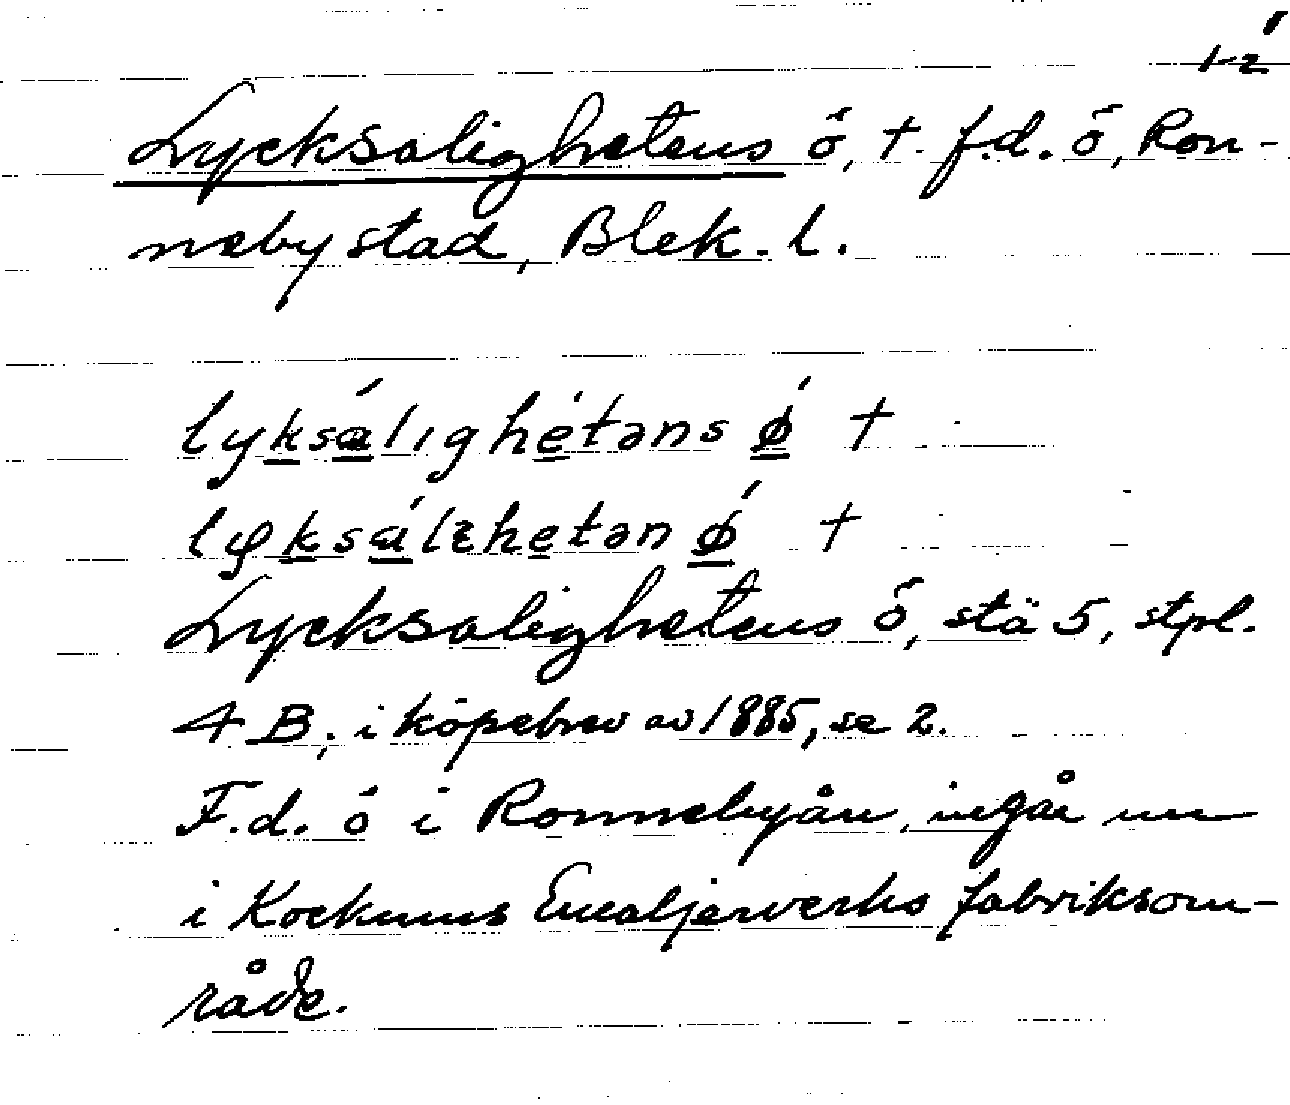 1-2
Lycksalighetens ö, † f.d. ö, Ron-
neby stad, Blek. l.
lyksálighétəns ǿ †
lyksálεhetən ǿ †
Lycksalighetens ö, stä 5, stpl.
4 B, i köpebrev av 1885, se 2.
F.d. ö i Ronnebyån, ingår nu
i Kockums Emaljerverks fabriksom-
råde.